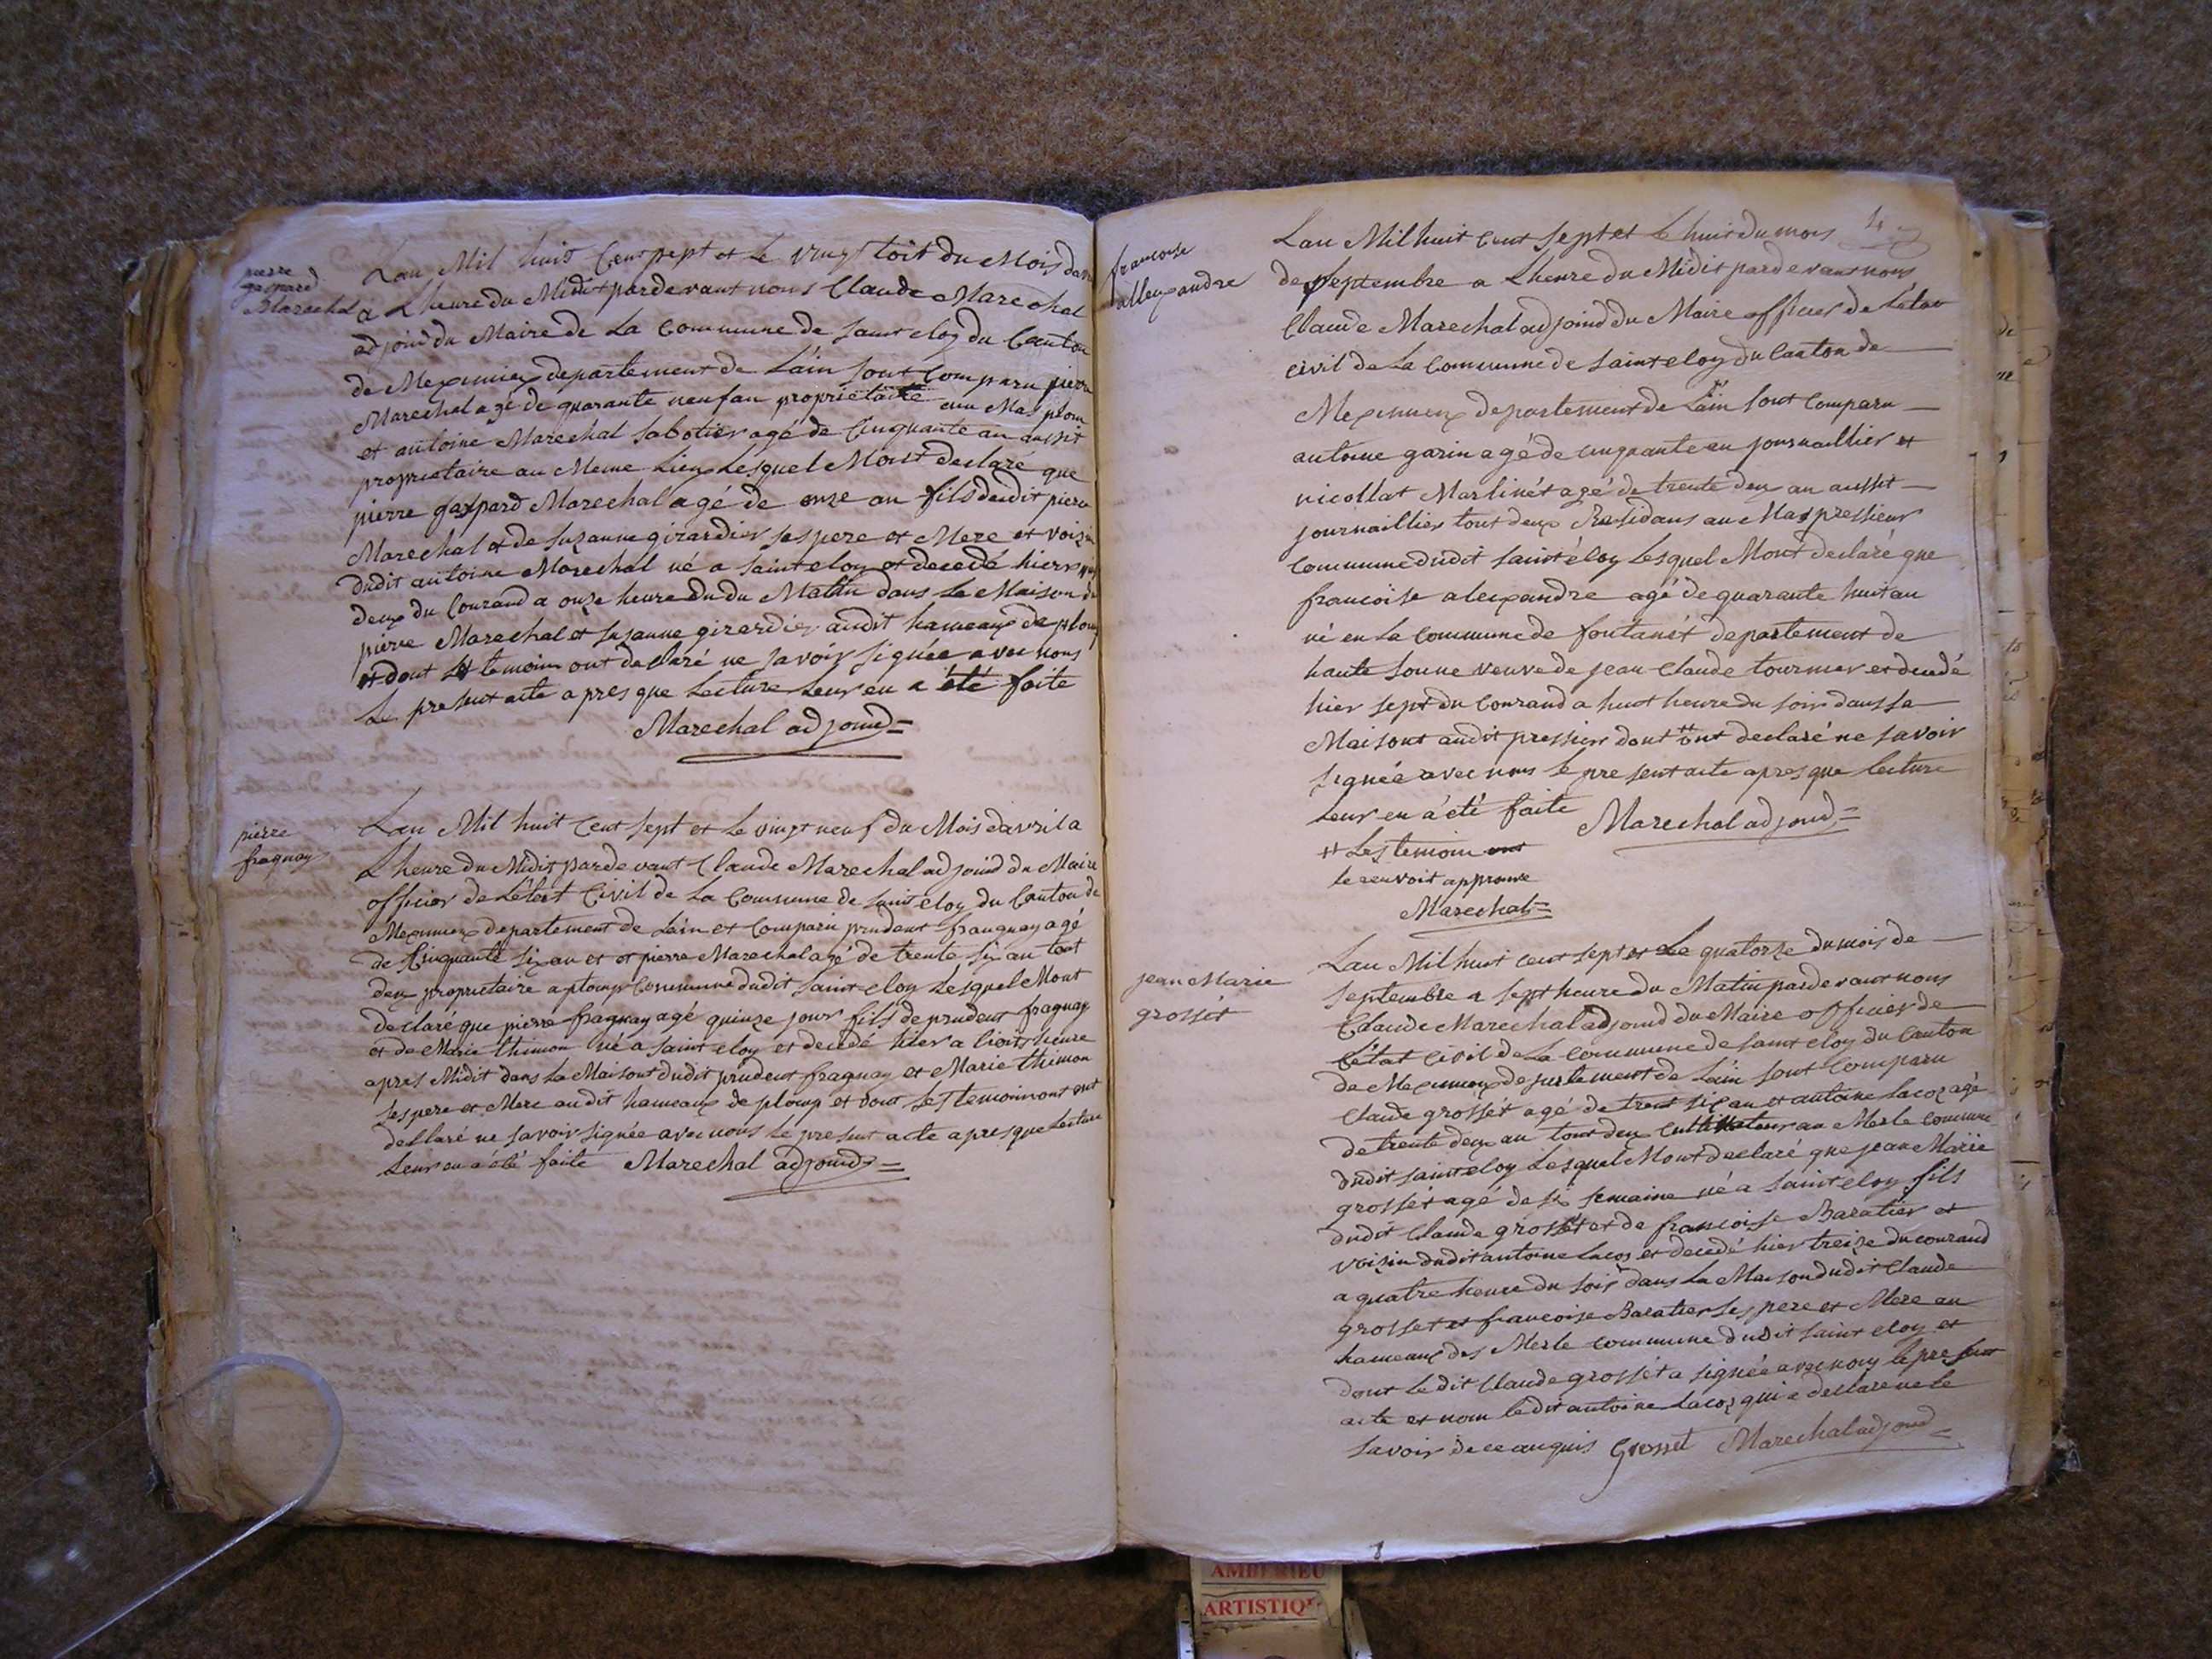 pierre
gaspard
Marechal
Lan Mil huit Cent sept et Le vingt toit du Mois
a Lheure du Midit pardevant nous Claude Marechal
adjoind du Maire de La Commune de saint eloy du Canton
de Meximieux departement de Lain sont Comparu pierre
Marechal agé de quarante neuf an proprietaire au Mas plom
et antoine Marechal sabotier agé de Cinquante an aussit
proprietaire au Meme Lieu Lesquel Mont declaré que
pierre gaspard Marechal agé de onze an fils dudit pierre
Marechal et de suzanne girardier ses pere et Mere et voizin
dudit antoine Marechal né a saint eloy et decedé hier
deux du Courand a onze heure du Matin dans La Maison
pierre Marechal et suzanne girardier audit hameaux de
et dont temoin ont declaré ne savoir signée avec nous
Le present acte apres que Lecture Leur en a été faite
Marechal adjoind
pierre
fraguay
Lan Mil huit Cent sept et Le vingt neuf du Mois davril a
Lheure du Midit pardevant Claude Marechal adjoind du Maire
officier de Létat Civil de La Commune de saint eloy du Canton de
Meximieux departement de Lain et Comparu prudent fraguay agé
de Cinquante six an et pierre Marechal agé de trente six an tout
deux proprietaire a Commune dudit saint eloy Lesquel Mont
declaré que pierre fraguay agé quinze jour fils de prudent fraguay
et de Marie thimon né a saint eloy et decedé hier a heure
apres Midit dans La Maisont dudit prudent fraguay et Marie thimon
ses pere et Mere audit hameaux de et dont Les temoin ont
declaré ne savoir signée avec nous Le present acte apres que Lecture
Leur en a été faite Marechal adjoind
francoise
allexandre
Lan Mil huit Cent sept et Le huit du mois
de septembre a Lheure du Midit pardevant nous
Claude Marechal adjoind du Maire officier de Létat
civil de La Commune de saint eloy du Canton de
Meximieux departement de Lain sont Comparu
antoine garin agé de cinquante an journaillier et
nicollat Martinét agé de trente deux an aussit
journaillier tout deux Residans au Mas pressieux
commune dudit saint éloy Lesquel Mont declaré que
francoise alexandre agé de quarante huit an
né en La Commune de fontanét departement de
haute sonne veuve de jean Claude tournier et decedé
hier sept du Courand a huit heure du soir dans sa
Maisont audit pressieux dont # ont declaré ne savoir
signée avec nous le present acte apres que lecture
Leur en a été faite Marechal adjoind
# Les temoin ont
le renvoit approuve
Marechal
jean Marie
grossét
Lan Mil huit cent sept et Le quatorze du mois de
septembre a sept heure du Matin pardevant nous
Claude Marechal adjoind du Maire officier de
Létat civil de La Commune de saint eloy du Canton
de Meximieux departement de Lain sont Comparu
Claude grossét agé de trent six an et antoine Lacoz agé
de trente deux an tout deux cultivateur au Merle commune
dudit saint eloy Lesquel Mont declaré que jean Marie
grossét agé de six semaine né a saint eloy fils
dudit Claude grossét et de francoise Baratier et
voizin dudit antoine Lacoz et decedé hier treize du courand
a quatre heure du soir dans La Maison dudit Claude
grosset et francoise Baratier ses pere et Mere au
hameaux des Merle commune dudit saint eloy et
dont Ledit Claude grossét a signée avec nous le present
acte et nom ledit antoine Lacoz qui a declare ne le
savoir de ce anquis Grosset Marechal adjoind
AMBERIEU
ARTISTIQ